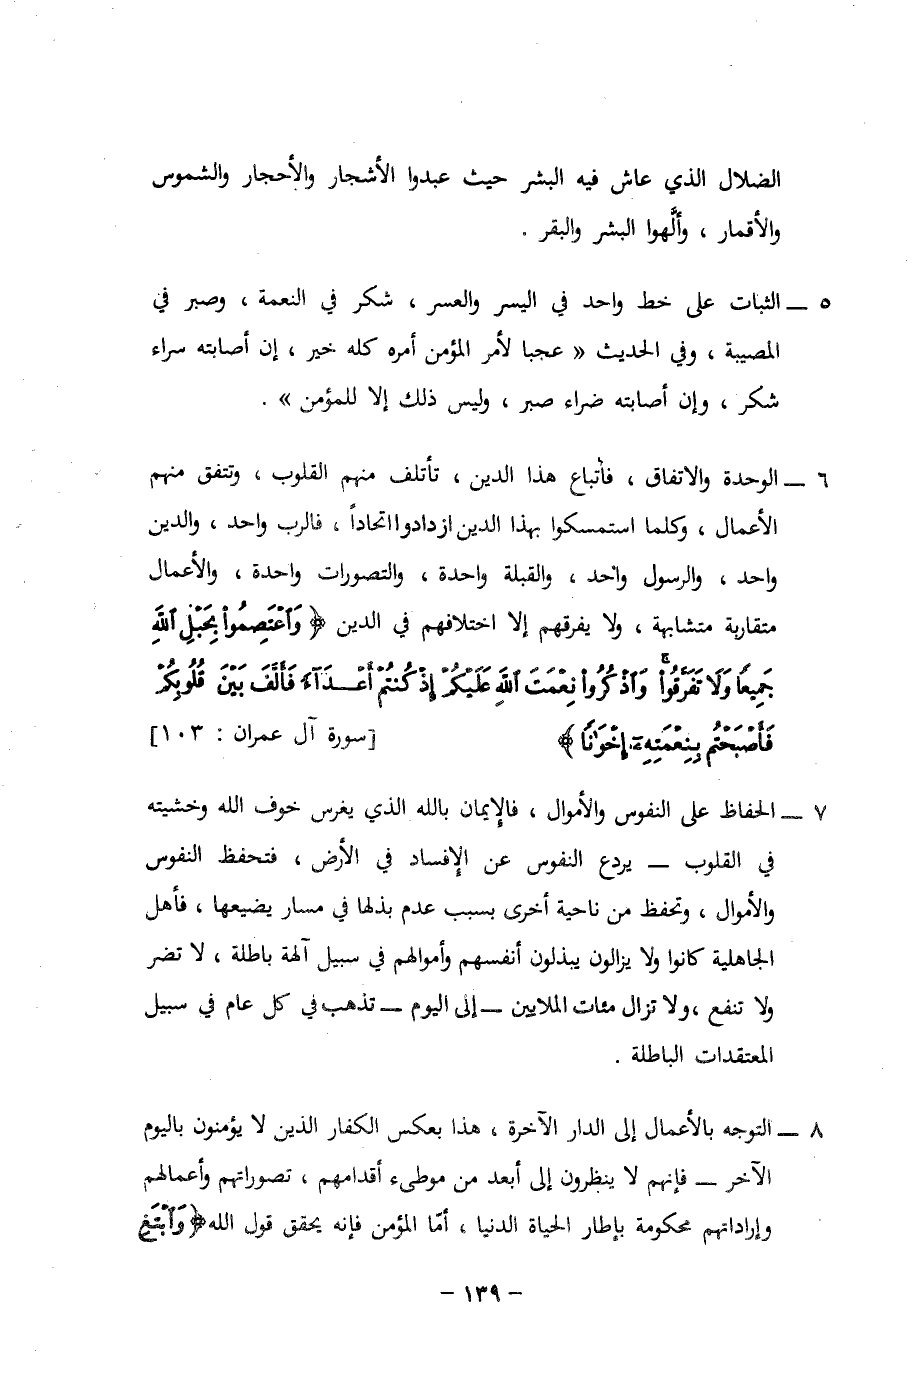 الضلال الذي عاش فيه البشر حيث عبدوا الأشجار والأحجار والشموس
والأقمار ، وألَّهوا البشر والبقر .
٥ ــ الثبات على خط واحد في اليسر والعسر ، شكر في النعمة ، وصبر في
المصيبة ، وفي الحديث « عجبا لأمر المؤمن أمره كله خير ، إن أصابته سراء
شكر ، وإن أصابته ضراء صبر ، وليس ذلك إلا للمؤمن » .
٦ ــ الوحدة والاتفاق ، فأتباع هذا الدين ، تأتلف منهم القلوب ، وتتفق منهم
الأعمال ، وكلما استمسكوا بهذا الدين ازدادوا اتحاداً ، فالرب واحد ، والدين
واحد ، والرسول واحد ، والقبلة واحدة ، والتصورات واحدة ، والأعمال
متقاربة متشابهة ، ولا يفرقهم إلا اختلافهم في الدين ﴿ وَٱعْتَصِمُوا۟ بِحَبْلِ ٱللَّهِ
جَمِيعًا وَلَا تَفَرَّقُوا۟ ۚ وَٱذْكُرُوا۟ نِعْمَتَ ٱللَّهِ عَلَيْكُمْ إِذْ كُنتُمْ أَعْدَآءً فَأَلَّفَ بَيْنَ قُلُوبِكُمْ
فَأَصْبَحْتُم بِنِعْمَتِهِۦٓ إِخْوَٰنًا ﴾ [سورة آل عمران : ١٠٣]
٧ ــ الحفاظ على النفوس والأموال ، فالإيمان بالله الذي يغرس خوف الله وخشيته
في القلوب ــ يردع النفوس عن الإفساد في الأرض ، فتحفظ النفوس
والأموال ، وتحفظ من ناحية أخرى بسبب عدم بذلها في مسار يضيعها ، فأهل
الجاهلية كانوا ولا يزالون يبذلون أنفسهم وأموالهم في سبيل آلهة باطلة ، لا تضر
ولا تنفع ، ولا تزال مئات الملايين ــ إلى اليوم ــ تذهب في كل عام في سبيل
المعتقدات الباطلة .
٨ ــ التوجه بالأعمال إلى الدار الآخرة ، هذا بعكس الكفار الذين لا يؤمنون باليوم
الآخر ــ فإنهم لا ينظرون إلى أبعد من موطىء أقدامهم ، تصوراتهم وأعمالهم
وإراداتهم محكومة بإطار الحياة الدنيا ، أمّا المؤمن فإنه يحقق قول الله ﴿ وَٱبْتَغِ
- ١٣٩ -